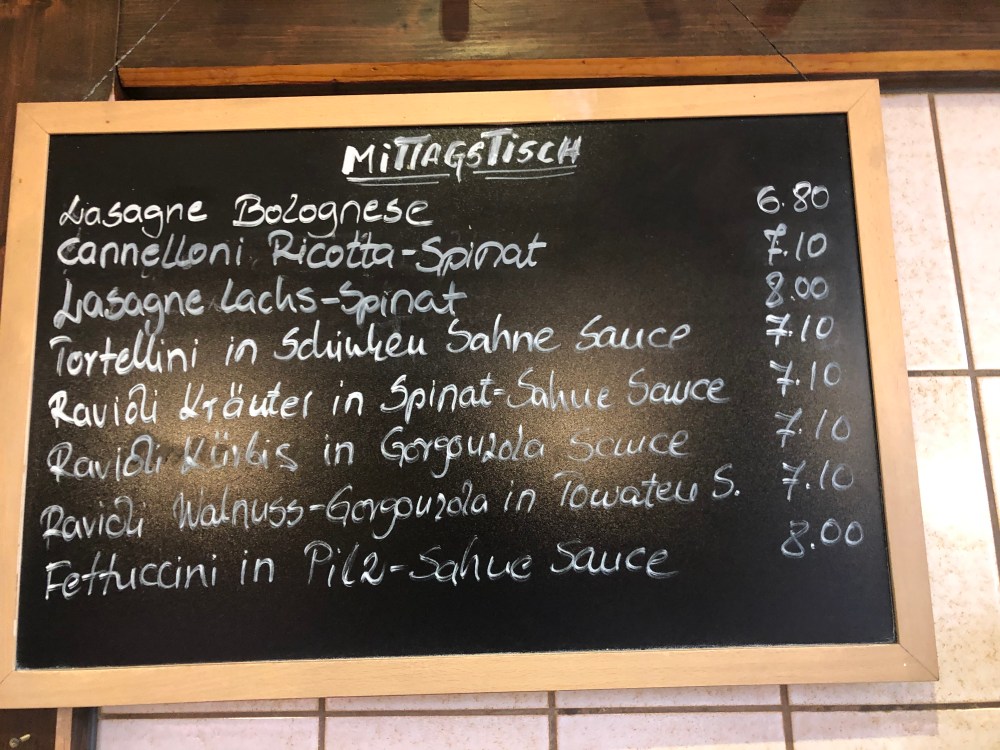 MiTTAGSTiSCH
Lasagne Bolognese 6.80
Cannelloni Ricotta-Spinat 7.10
Lasagne Lachs-Spinat 8.00
Tortellini in Schinken Sahne Sauce 7.10
Ravioli Kräuter in Spinat-Sahne Sauce 7.10
Ravioli Kürbis in Gorgonzola Sauce 7.10
Ravioli Walnuss-Gorgonzola in Tomaten S. 7.10
Fettuccini in Pilz-Sahne Sauce 8.00